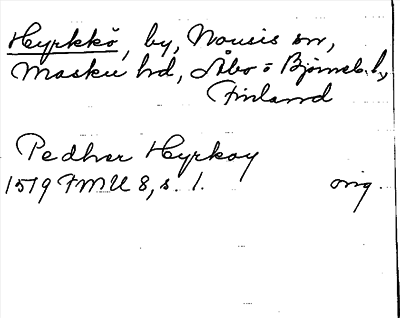 Hyrkkö, by, Nousis sn,
Masku hd, Åbo o Björneb. l,
Finland
Pedher Hyrkoy
1519 FMU 8, s. 1. orig.